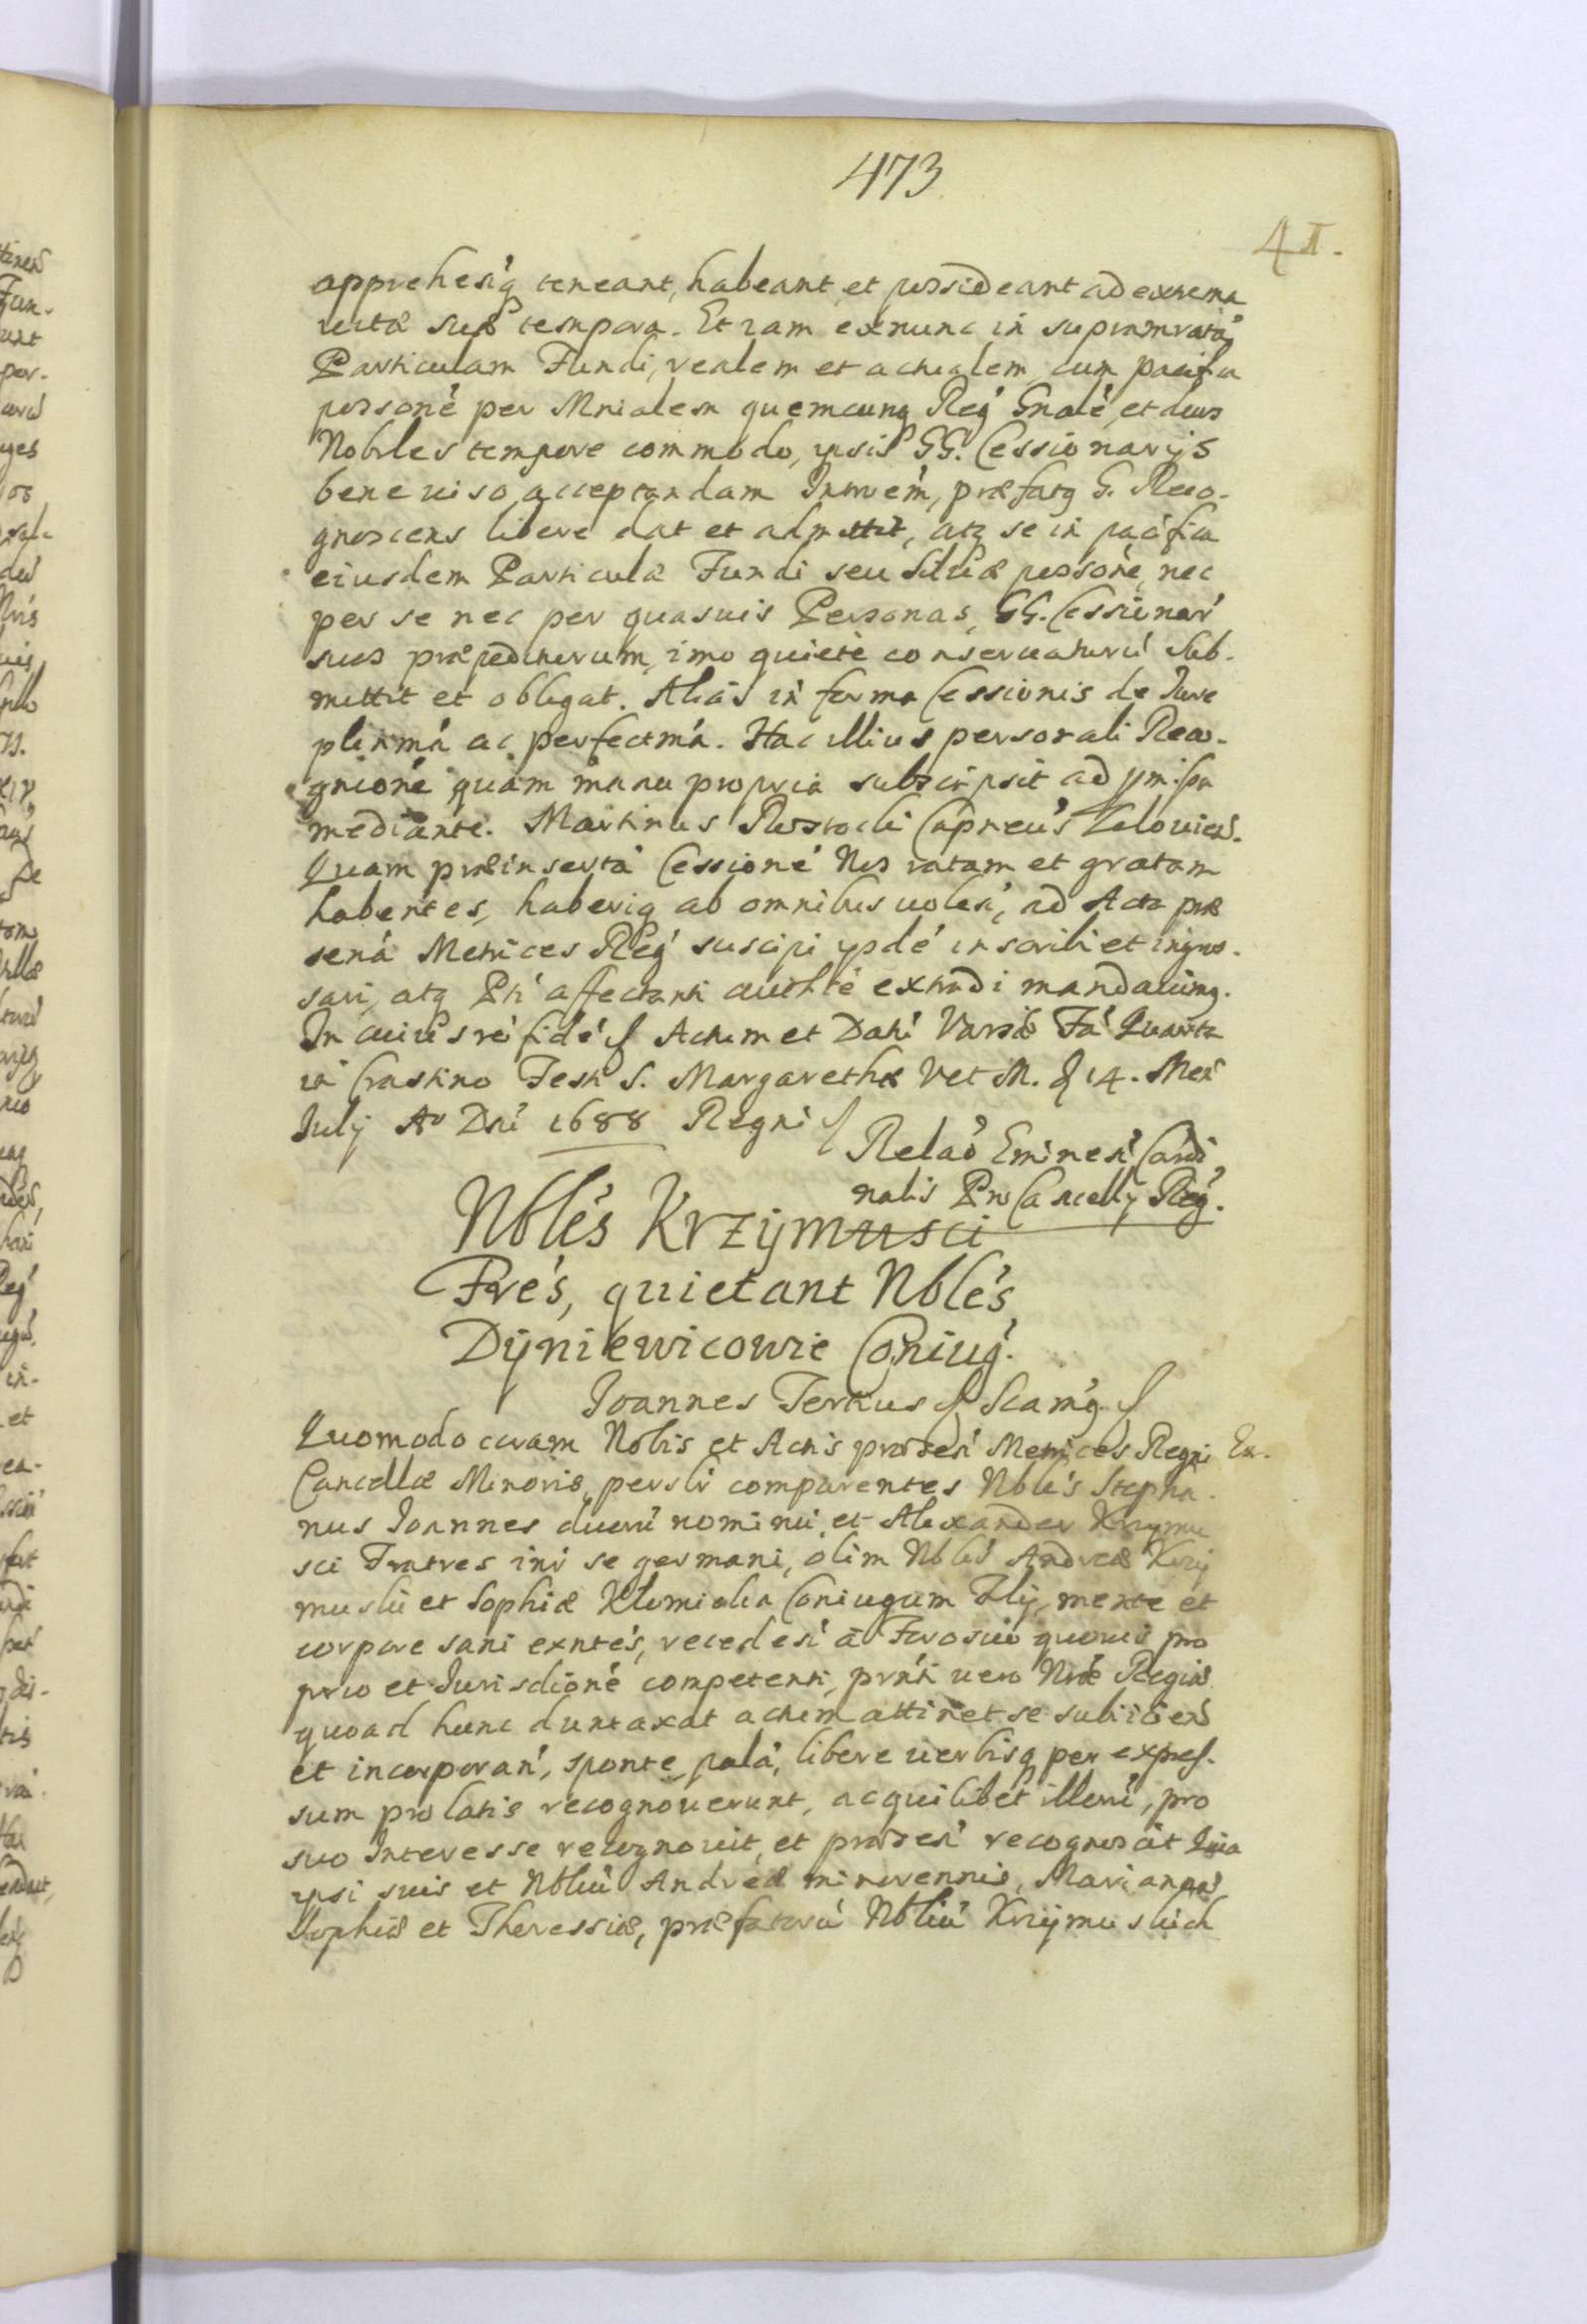 473
41.
apprehesíq teneant, habeant, et possideant ad extrema
uitæ suæ tempora. Et iam exnunc in supramratá
Particulam Fundi, realem et actualem, cum pacifica
possoné per Mnialem quemcunq Reg̃ Gnalé, et duos
Nobiles tempore commodo, ipsis GG. Cessionarijs
bene uiso, acceptandam Intrōem, præfatq G. Reco-
gnoscens libere dat et admittit, atq se in pacifica
eiusdem Particulæ Fundi seu Siluæ possone, nec
per se nec per quasuis Personas, GG. Cessionar̃
suos præpediturum, imo quietè conseruaturú sub-
mittit et obligat. Aliàs in forma Cessionis de Iure
plenmá ac perfectmá. Hac illius personali Reco-
gnitioné quam manu propria subscripsit ad pmissa
mediante. Martinus
Quam præinsertá Cessioné Nos ratam et gratam
habentes, haberiq ab omnibus uolen̄, ad Acta præ
senã Metrices Reg̃ suscipi ipdé inscribi et ingros-
sari, atq Pti affectanti authté extradi mandauimq.
In cuius rei fidé ∫ Actum et Datú Varsæ Fa Quarta
in Crastino Festi S. Margarethæ V et M. d 14. Men̄
July Aº Dni 1688 Regni ∫
Relaõ Eminen̄ Cardi
nalis ProCancelly Reg̃.
Nblés Krzymusci
Frés, quietant Nblés
Dyniewicowie Coniug̃.
Joannes Tertius ∫ Scamq ∫
Quomodo coram Nobis et Actis præsen̄ Metrices Regni Ex.
Cancellæ Minoris, persłr comparentes Nblés Stepha-
nus Joannes duorú nominú, et Alexander Krzymu
sci Fratres intr se germani, olim Nbliú Andreæ Krzy
muski et Sophiæ Coniugum Filij, mente et
corpore sani exntés, receden̄ à Foro suo quouis pro
prio et Jurisdictioné competenti, prnti uero Nræ Regiæ
quoad hunc duntaxat actum attinet se subiicien̄
et incorporan̄, sponte, palá, libere uerbisq per expres-
sum prolatis recognouerunt, ac quilibet illorú, pro
suo Interesse recognouit, et præsen̄ recognoscit Quia
ipsi suis et Nbliú Andreæ minorennis, Mariannæ
Sophiæ et Theressiæ, præfatorú Nbliú Krzymuskich